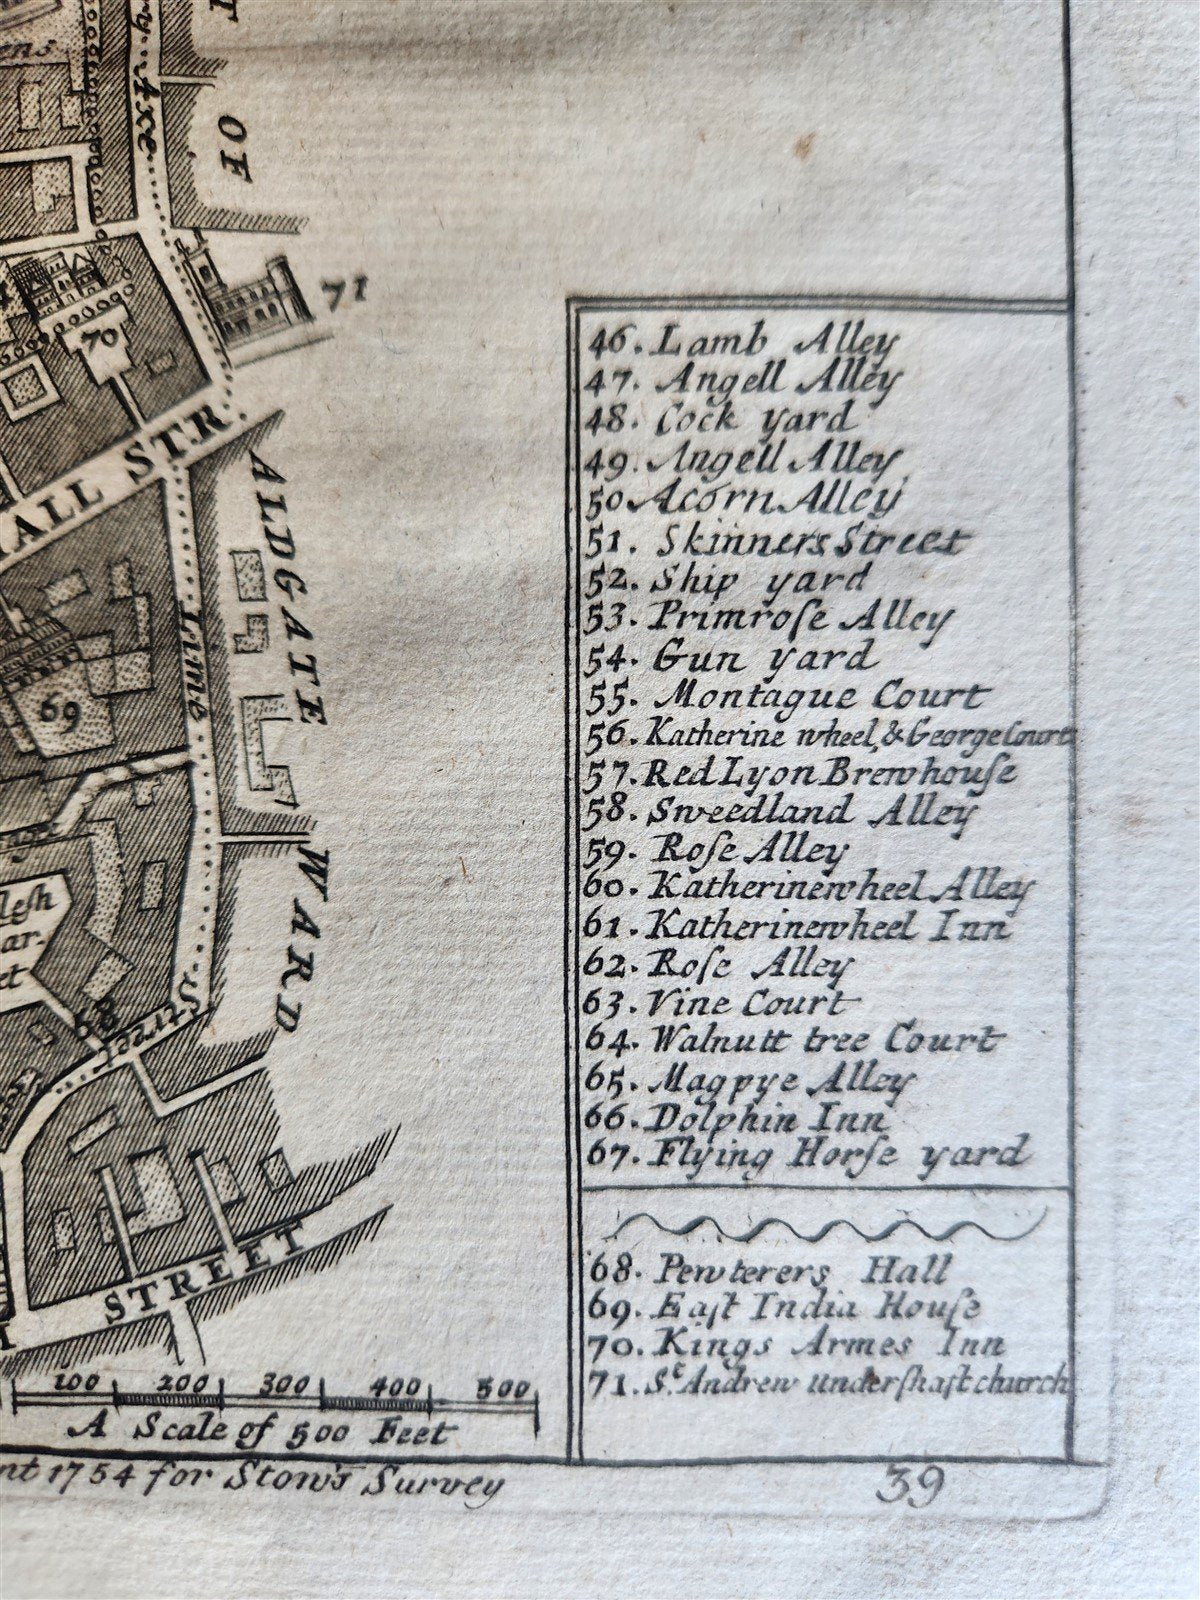 ens
ry Axe
OF
71
70
HALL STR
ALDGATE
WARD
Lime
Street
69
lesh
ar.
et
68
STREET
100 200 300 400 500
A Scale of 500 Feet
nt 1754 for Stow's Survey
46. Lamb Alley
47. Angell Alley
48. Cock yard
49. Angell Alley
50 Acorn Alley
51. Skinners Street
52. Ship yard
53. Primroſe Alley
54. Gun yard
55. Montague Court
56. Katherine wheel, & George Court
57. Red Lyon Brewhouſe
58. Sweedland Alley
59. Roſe Alley
60. Katherinewheel Alley
61. Katherinewheel Inn
62. Roſe Alley
63. Vine Court
64. Walnutt tree Court
65. Magpye Alley
66. Dolphin Inn
67. Flying Horſe yard
68. Pewterers Hall
69. Eaſt India Houſe
70. Kings Armes Inn
71. St. Andrew underſhaft church
39